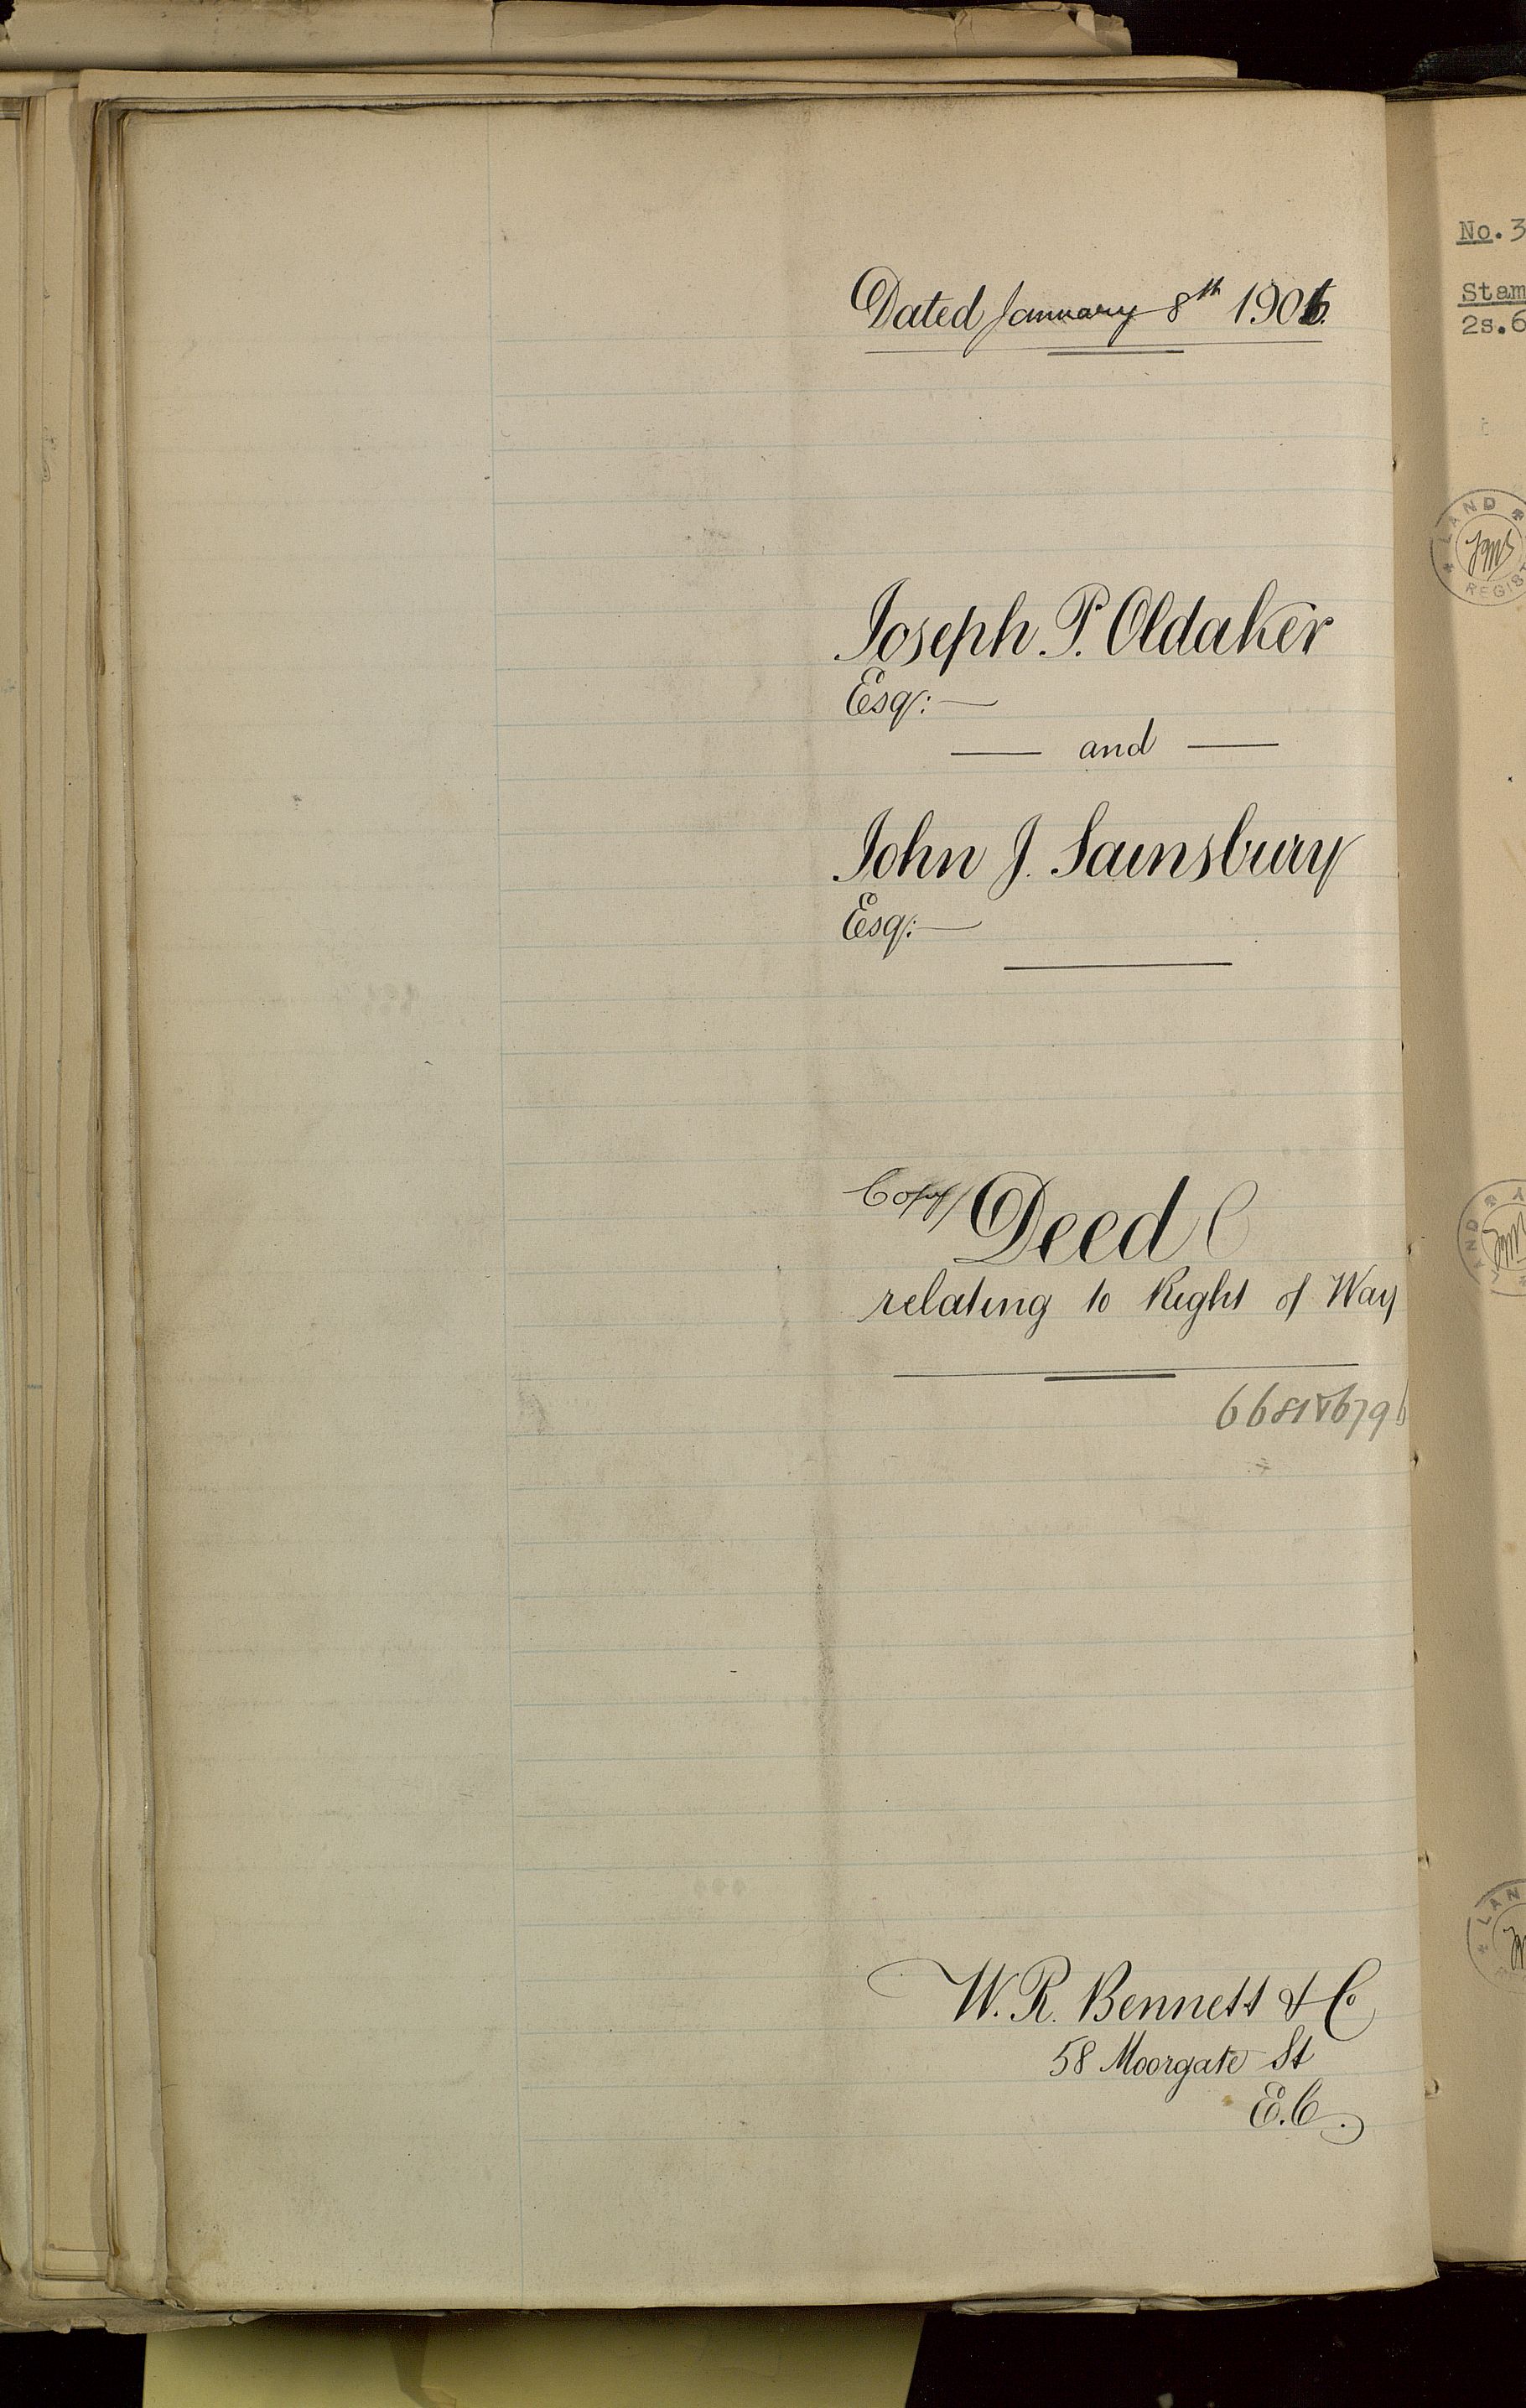 Dated January 8th 1906.
Joseph P. Oldaker
Esq:—
— and —
John J. Sainsbury
Esq:—
Copy/ Deed
relating to Right of Way
W. R. Bennett & Co
58 Moorgate St
E.C.
No. 3
Stam
2s.6
LAND
REGIST
LAND
LAN